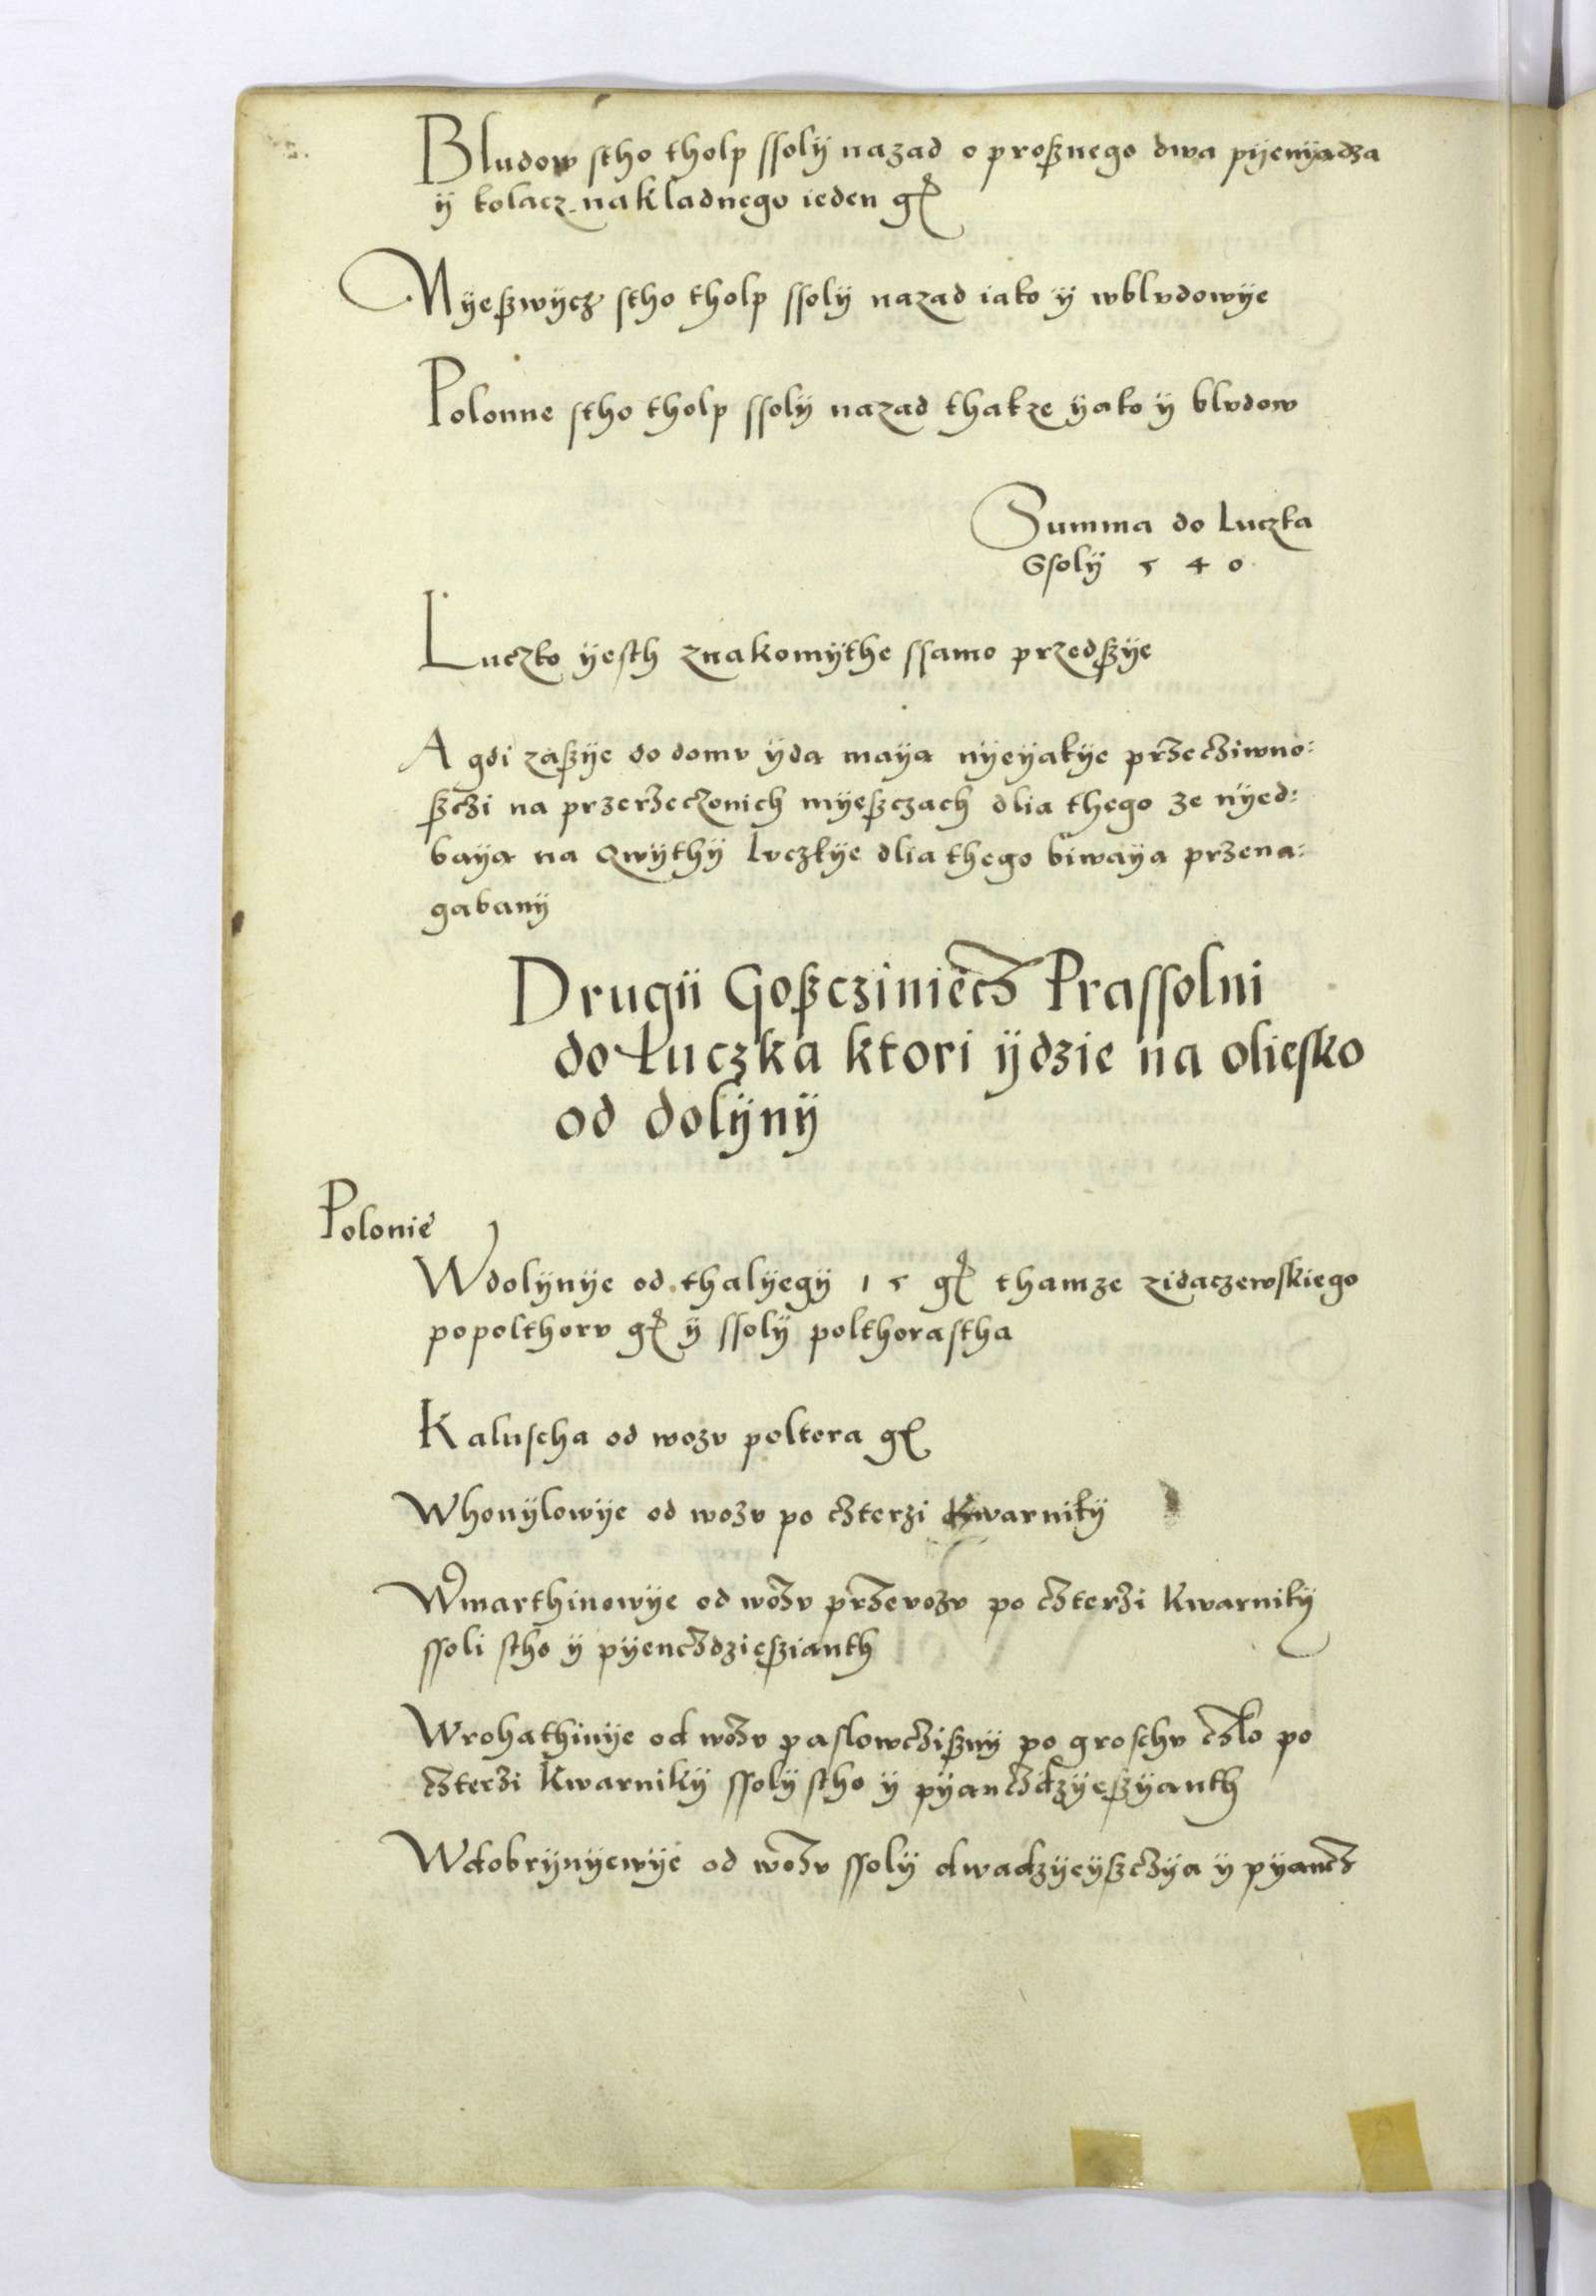 Bludow stho tholp ssolÿ nazad o proßnego dwa pÿenÿadza
ÿ kolacz nakladnego ieden gꝭ
Nÿeßwÿcz stho tholp ssolÿ nazad iako ÿ wblvdowÿe
Polonne stho tholp ssolÿ nazad thakze ÿako ÿ blvdow
Summa do Luczka
Ssolÿ 5 4 0
Luczko ÿesth znakomÿthe ssamo przedßÿe
A gdi zaßÿe do domv ÿda maÿa nÿeÿakÿe przecziwno:
ßczi na przerzeczonich mÿeßczach dlia thego ze nÿed:
baÿa na qwÿthÿ lvczkÿe dlia thego biwaÿa przena:
gabanÿ
Drugii Goßcziniecz Prassolni
do Łuczka ktori ÿdzie na oliesko
od dolÿnÿ
Polonie
Wdolÿnÿe od thalÿegÿ 15 gꝭ thamze zidaczewskiego
popolthorv gꝭ ÿ ssolÿ polthorastha
Kaluscha od wozv poltora gꝭ
Whonÿlowÿe od wozv po czterzi Kwarnikÿ
Wmarthinowÿe od wozv przevozv po czterzi Kwarnikÿ
ssoli stho ÿ pÿenczdzießianth
Wrohathinÿe od wozv paslowczißnÿ po groschv czlo po
czterzi Kwarnikÿ ssolÿ stho ÿ pÿanczdzÿeßÿanth
Wdobrÿnÿewÿe od wozv ssolÿ dwadzÿeÿßczÿa ÿ pÿancz